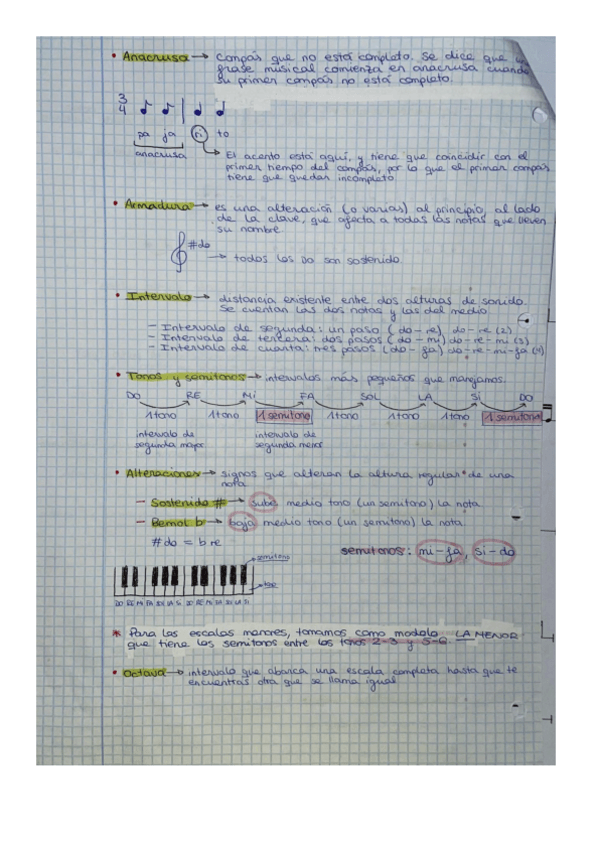 • Anacrusa → Compás que no está completo. Se dice que una
frase musical comienza en anacrusa cuando
su primer compás no está completo.
3
4
pa ja ri to
anacrusa
El acento está aquí, y tiene que coincidir con el
primer tiempo del compás, por lo que el primer compás
tiene que quedar incompleto
• Armadura → es una alteración (o varias) al principio, al lado
de la clave, que afecta a todas las notas que lleven
su nombre
#do
→ todos los DO son sostenido.
• Intervalo → distancia existente entre dos alturas de sonido.
Se cuentan las dos notas y las del medio
- Intervalo de segunda: un paso (do-re) do-re (2)
- Intervalo de tercera: dos pasos (do-mi) do-re-mi (3)
- Intervalo de cuarta: tres pasos (do-fa) do-re-mi-fa (4)
• Tonos y semitonos → intervalos más pequeños que manejamos.
DO RE Mi FA SOL LA Si DO
1 tono 1 tono 1 semitono 1 tono 1 tono 1 tono 1 semitono
intervalo de segunda mayor
intervalo de segunda menor
• Alteraciones → signos que alteran la altura regular de una
nota
- Sostenido # → sube medio tono (un semitono) la nota
- Bemol b → baja medio tono (un semitono) la nota
#do = b re
semitonos: mi-fa, si-do
semitono
DO RE Mi FA SOL LA Si DO RE Mi FA SOL LA Si
* Para las escalas menores, tomamos como modelo LA MENOR
que tiene los semitonos entre los tonos 2-3 y 5-6.
• Octava → intervalo que abarca una escala completa hasta que te
encuentras otra que se llama igual